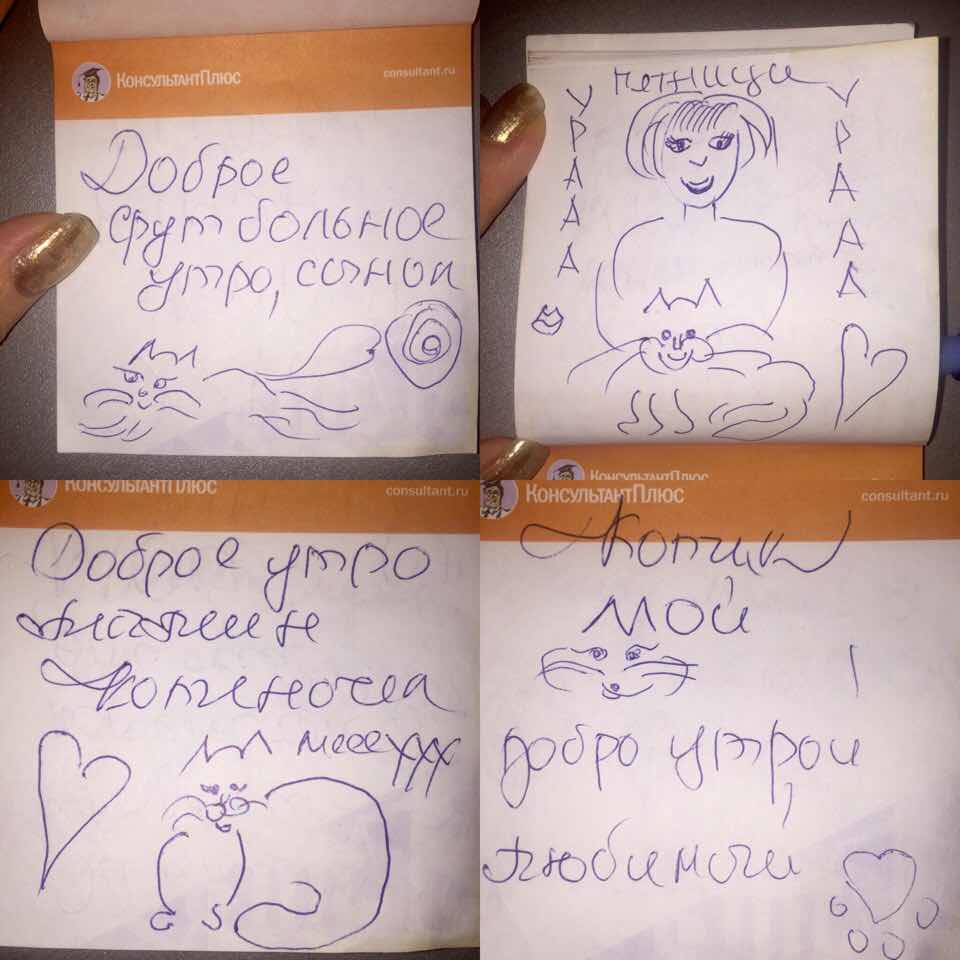 КонсультантПлюс
consultant.ru
Доброе
футбольное
утро,
петници
УРААА
УРАААА
КонсультантПлюс
КонсультантПлюс
consultant.ru
Доброе утро
котеночка
мееехххх
КонсультантПлюс
consultant.ru
Котик
мой
!
добро утрои,
любимочи